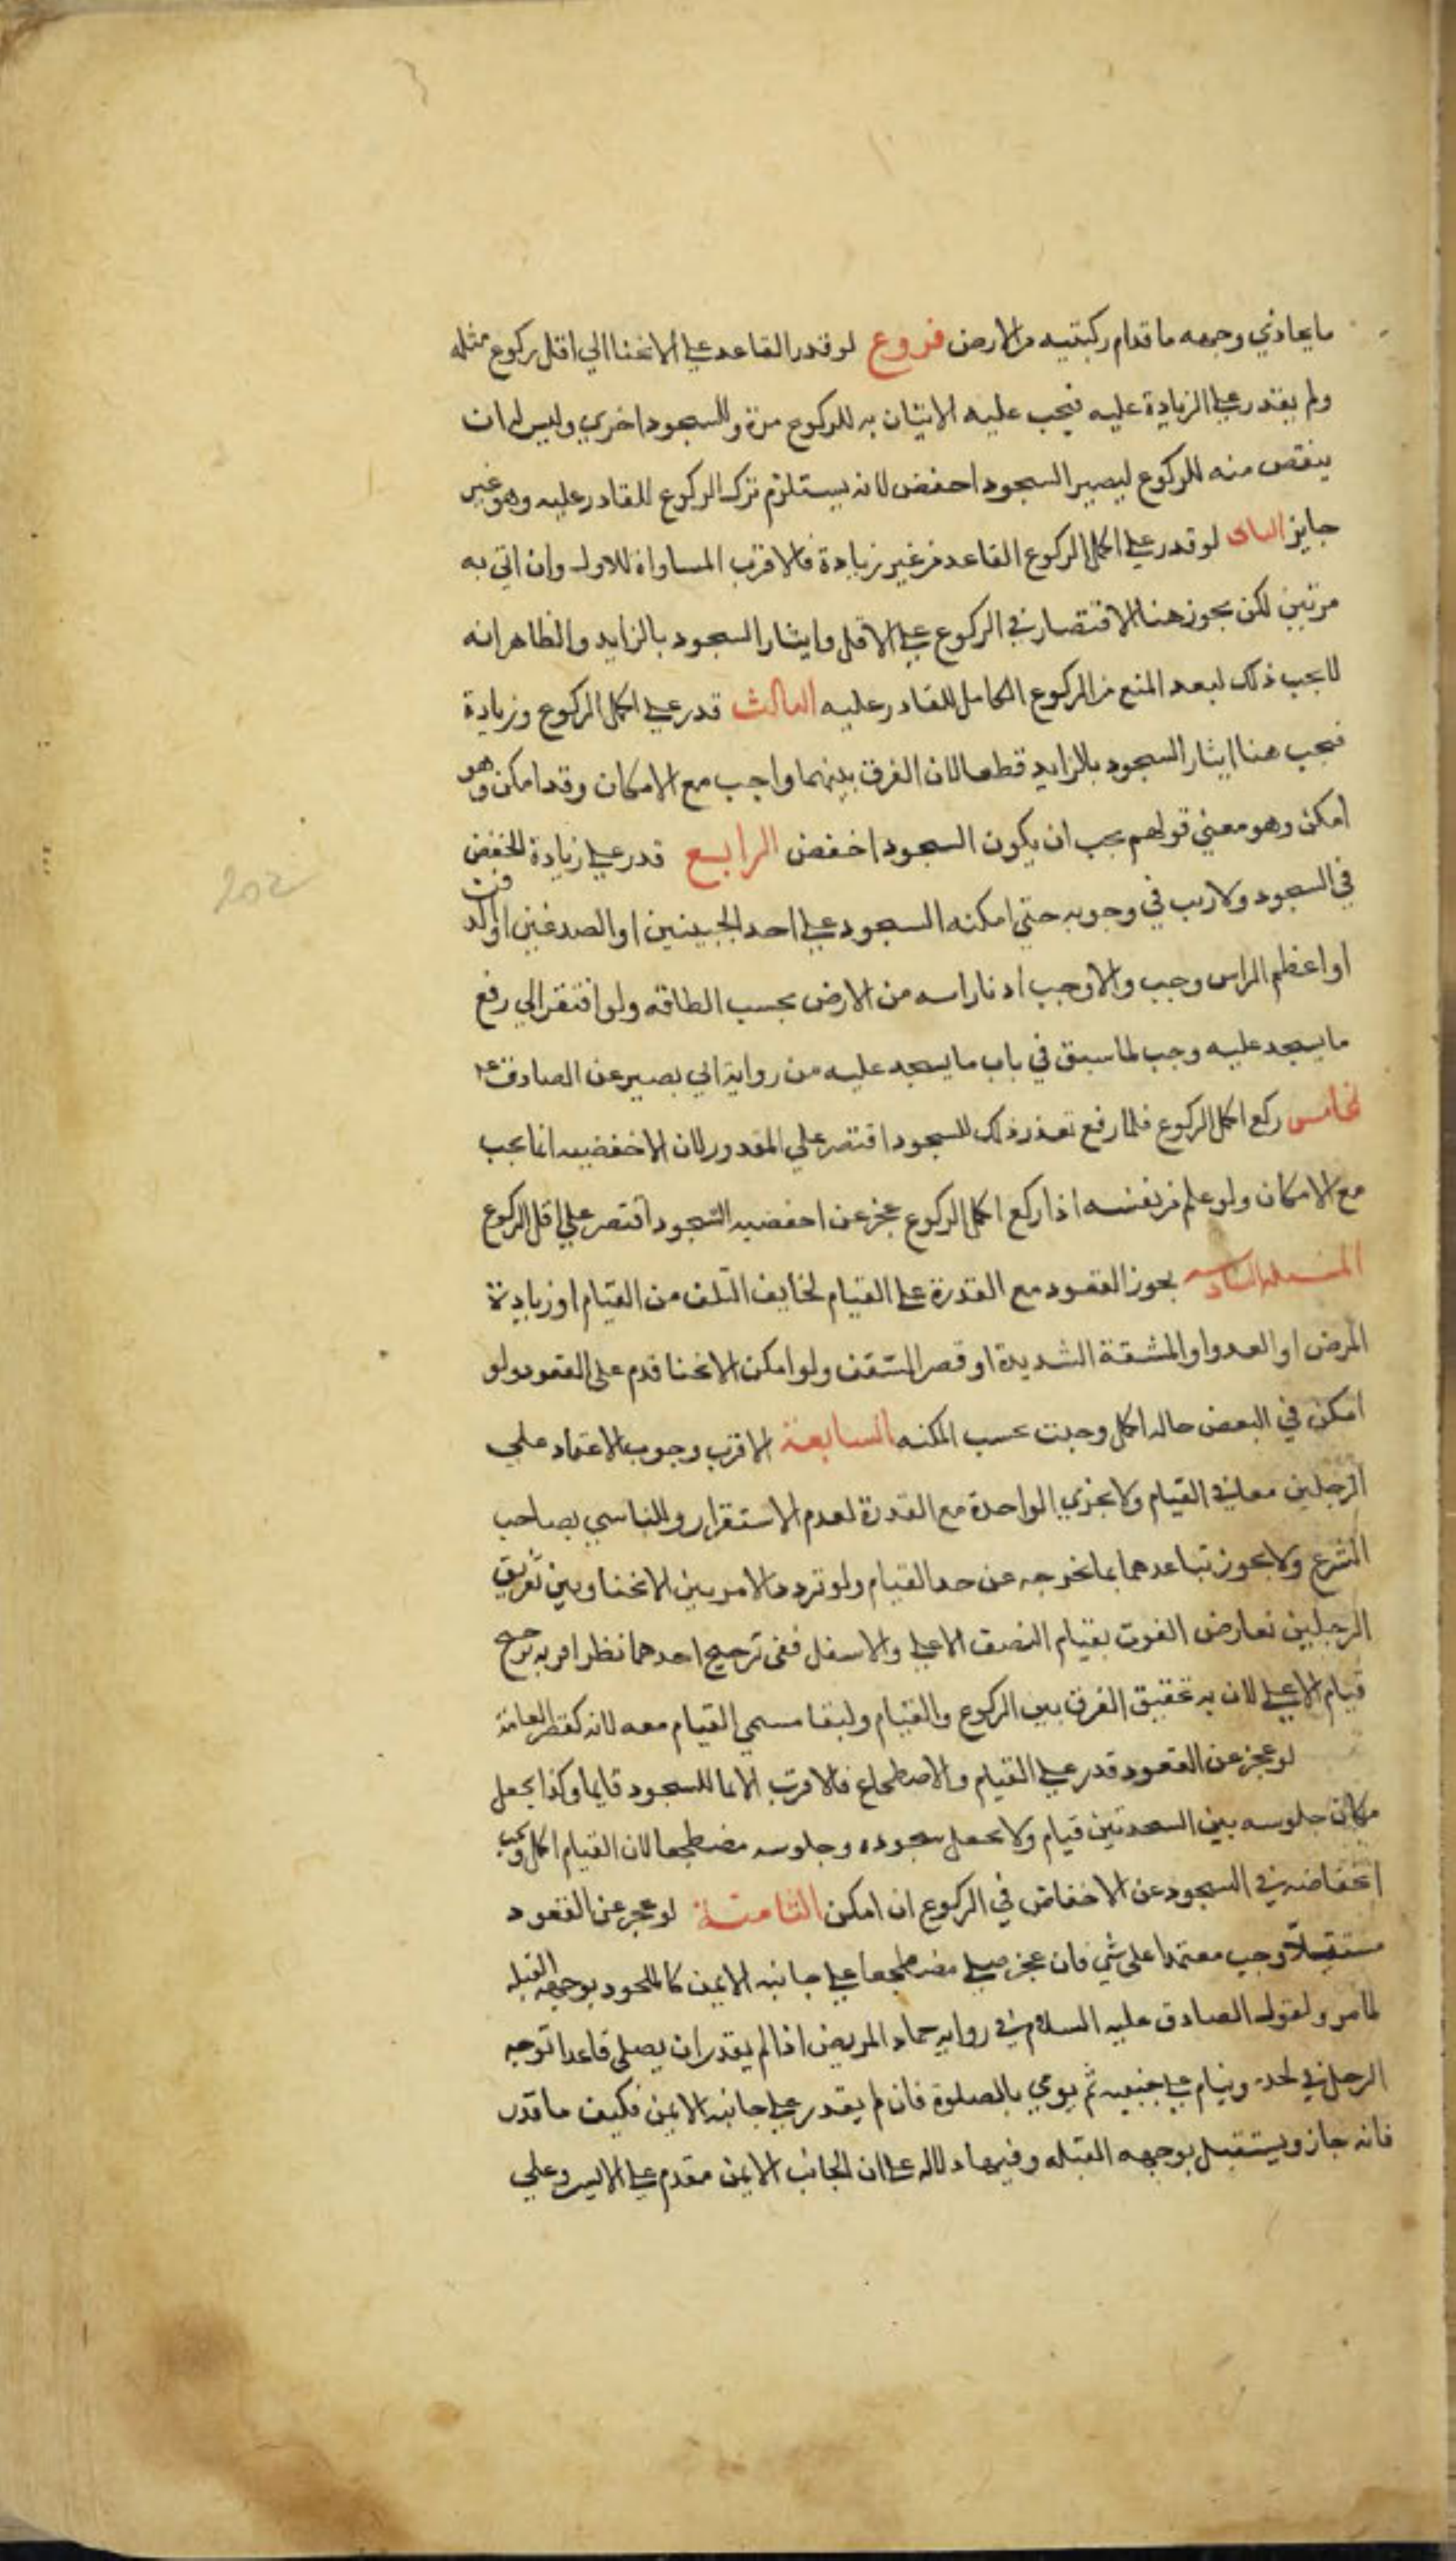 ما يحاذي وجهه ما قدام ركبتيه من الارض فروع لو قدر القاعد على الانحنا الي اقل ركوع مثله
ولم يقدر على الزيادة عليه فيجب عليه الاتيان به للركوع مرة وللسجود اخري وليس له ان
ينقص منه للركوع ليصير السجود اخفض لانه يستلزم ترك الركوع للقادر عليه وهو غير
جايز الثاني لو قدر على اكمل الركوع القاعد من غير زيادة فالاقرب المساواة للاول وان اتي به
مرتين لكن يجوز هنا الاقتصار في الركوع على الاقل وايثار السجود بالزايد والظاهر انه
لا يجب ذلك لبعد المنع من الركوع الكامل للقادر عليه الثالث قدر على اكمل الركوع وزيادة
فيجب هنا ايثار السجود بالزايد قطعا لان الفرق بينهما واجب مع الامكان وقد امكن وهو
امكن وهو معني قولهم يجب ان يكون السجود اخفض الرابع قدر على زيادة الخفض
في السجود ولا ريب في وجوبه حتي امكنه السجود على احد الجبينين او الصدغين او الذقن
او اعظم الراس وجب والا وجب ادنا راسه من الارض بحسب الطاقه ولو افتقر الي رفع
ما يسجد عليه وجب لما سبق في باب ما يسجد عليه من رواية ابي بصير عن الصادق ع
لخامس ركع اكمل الركوع فلما رفع تعذر ذلك للسجود اقتصر علي المقدور لان الاخفضيه انما يجب
مع الامكان ولو علم من نفسه اذا ركع اكمل الركوع عجز عن اخفضيه السجود اقتصر علي اقل الركوع
المسئله السادسه يجوز القعود مع القدرة على القيام لخايف التلف من القيام او زيادة
المرض او العدو او المشقة الشديدة او قصر السقف ولو امكن الانحنا قدم على القعود ولو
امكن في البعض حاله اكمل وجبت بحسب المكنه السابعة الاقرب وجوب الاعتماد علي
الرجلين معا في القيام ولا يجزي الواحدة مع القدرة لعدم الاستقرار والتاسي بصاحب
الشرع ولا يجوز تباعدهما بما يخرجه عن حد القيام ولو تردد الامر بين الانحنا وبين تفريق
الرجلين تعارض الفوت بقيام النصف الاعلى والاسفل ففي ترجيح احدهما نظر اقربه ترجيح
قيام الاعلى لان به تحقيق الفرق بين الركوع والقيام ولبقا مسمي القيام معه لانه كقصر القامة
لو عجز عن القعود قدر على القيام والاضطجاع فالاقرب الايما للسجود قايما وكذا يجعل
مكان جلوسه بين السجدتين قيام ولا يجعل سجوده وجلوسه مضطجعا لان القيام اكمل ويجب
انخفاضه في السجود عن الاخفاض في الركوع ان امكن الثامنة لو عجز عن القعود
مستقبلا وجب معتمدا على شي فان عجز صلي مضطجعا على جانبه الايمن كالملحود بوجهه القبله
لما مر ولقول الصادق عليه السلام في روايه حماد المريض اذا لم يقدر ان يصلى قاعدا توجه
الرجل في لحده وينام على جنبيه ثم يومي بالصلوة فان لم يقدر على جانبه الايمن فكيف ما قدر
فانه جاز ويستقبل بوجهه القبله وفيها دلاله على ان الجانب الايمن مقدم على الايسر وعلي